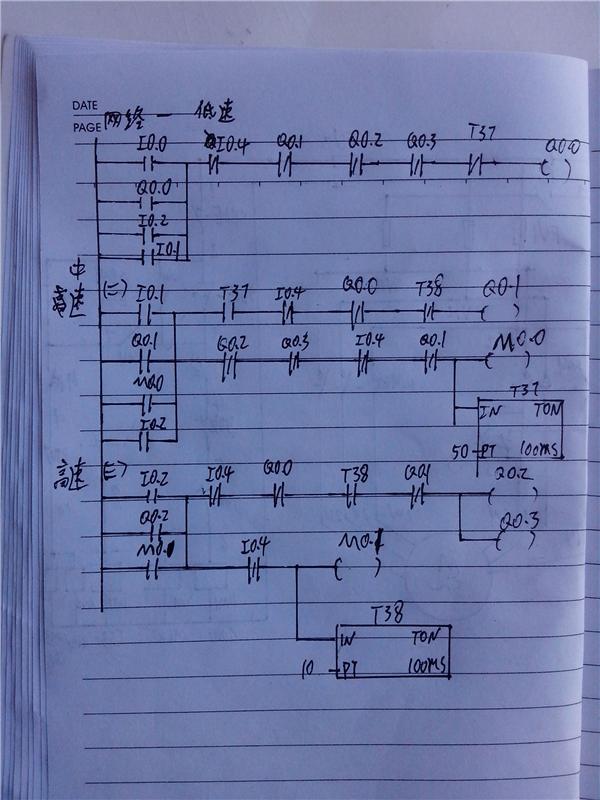 DATE
PAGE 网络一 低速
I0.0 I0.4 Q0.1 Q0.2 Q0.3 T37 Q0.0
Q0.0
I0.2
I0.1
中
高速 (二) I0.1 T37 I0.4 Q0.0 T38 Q0.1
Q0.1 Q0.2 Q0.3 I0.4 Q0.1 M0.0
M0.0 T37
I0.2 IN TON
50 PT 100MS
高速 (三) I0.2 I0.4 Q0.0 T38 Q0.1 Q0.2
Q0.2 Q0.3
M0.1 I0.4 M0.1
T38
IN TON
10 PT 100MS